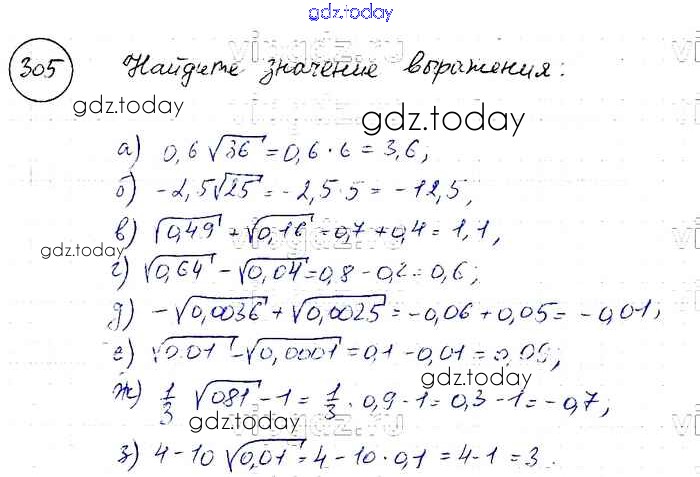 gdz.today
305 Найдите значение выражения:
gdz.today
gdz.today
а) 0,6√36 = 0,6 · 6 = 3,6;
б) -2,5√25 = -2,5·5 = -12,5,
в) √0,49 + √0,16 = 0,7 + 0,4 = 1,1,
gdz.today
г) √0,64 - √0,04 = 0,8 - 0,2 = 0,6;
д) -√0,0036 + √0,0025 = -0,06 + 0,05 = -0,01;
е) √0.01 - √0,0001 = 0,1 - 0,01 = 0,09;
gdz.today
ж) 1/3 √081 - 1 = 1/3 · 0,9 - 1 = 0,3 - 1 = -0,7;
gdz.today
з) 4 - 10√0,01 = 4 - 10·0,1 = 4-1 = 3.